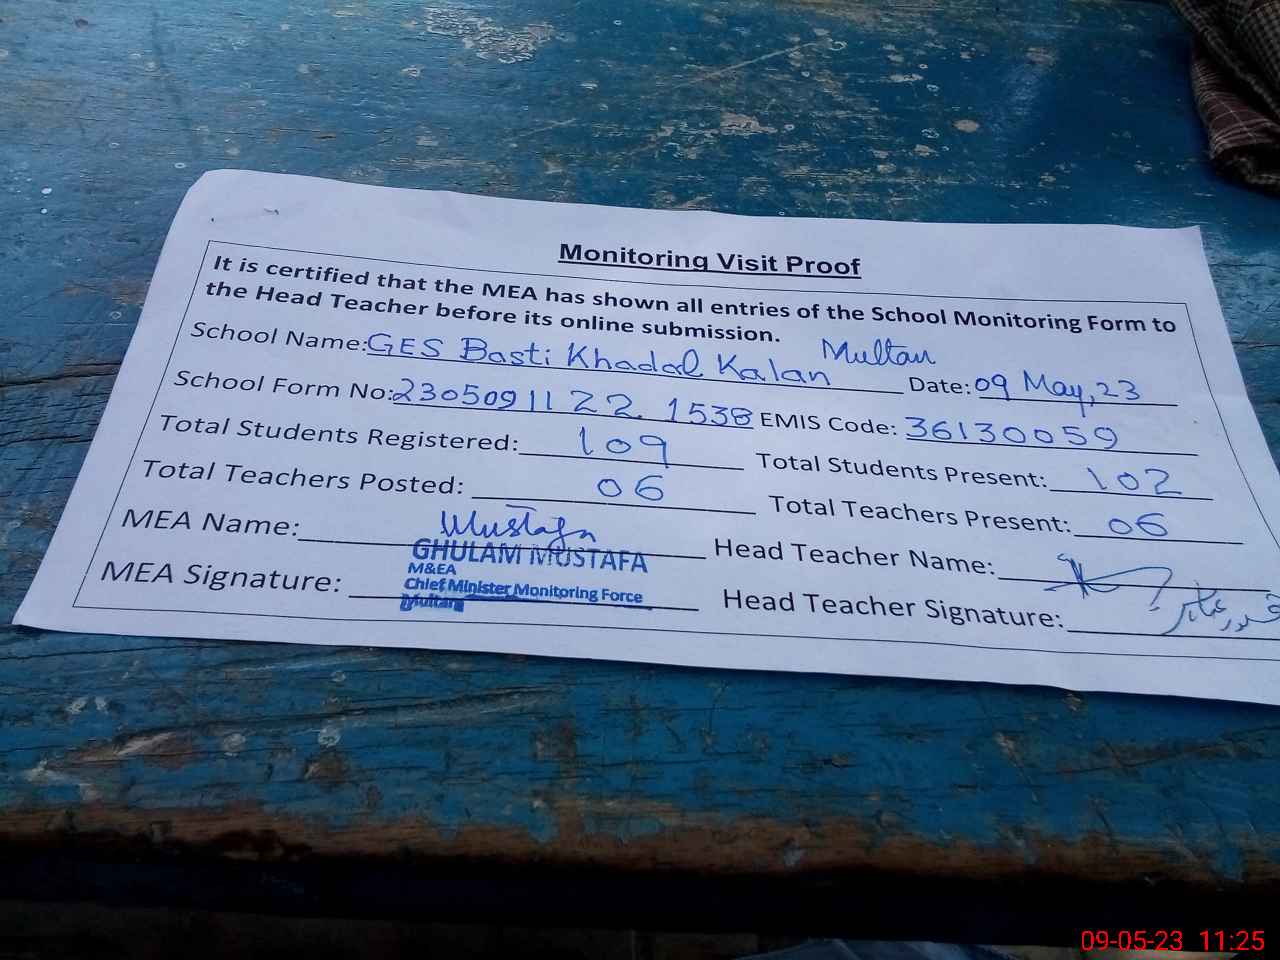 Monitoring Visit Proof
It is certified that the MEA has shown all entries of the School Monitoring Form to
the Head Teacher before its online submission.
School Name: GES Basti Khadal Kalan Multan Date: 09 May, 23
School Form No: 2305091122 1538 EMIS Code: 36130059
Total Students Registered: 109 Total Students Present: 102
Total Teachers Posted: 06 Total Teachers Present: 06
MEA Name: Mustafa Head Teacher Name:
GHULAM MUSTAFA
M&EA
Chief Minister Monitoring Force
Multan
MEA Signature: Head Teacher Signature:
09-05-23 11:25